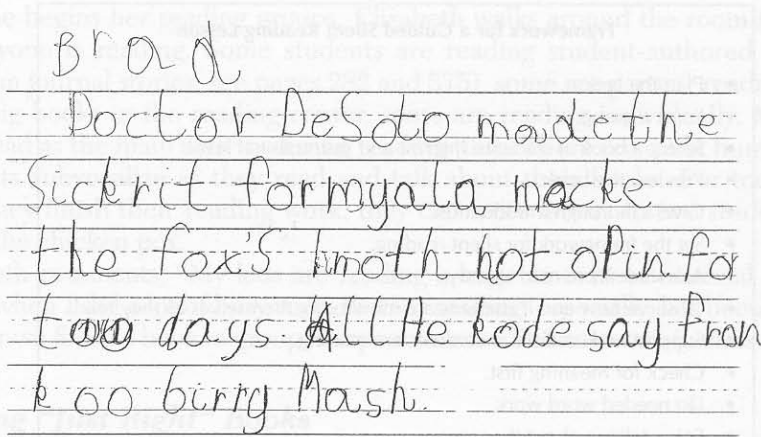 Brad
Doctor DeSoto made the
Sickrit formyala make
the fox's moth not opin for
too days. All He kode say
birry Mash.